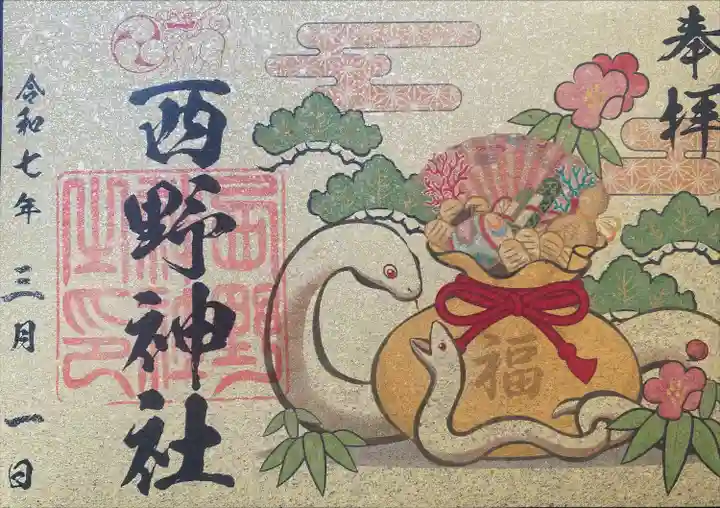 奉拝
福
西野神社
西野神社之印
令和七年 三月 一日